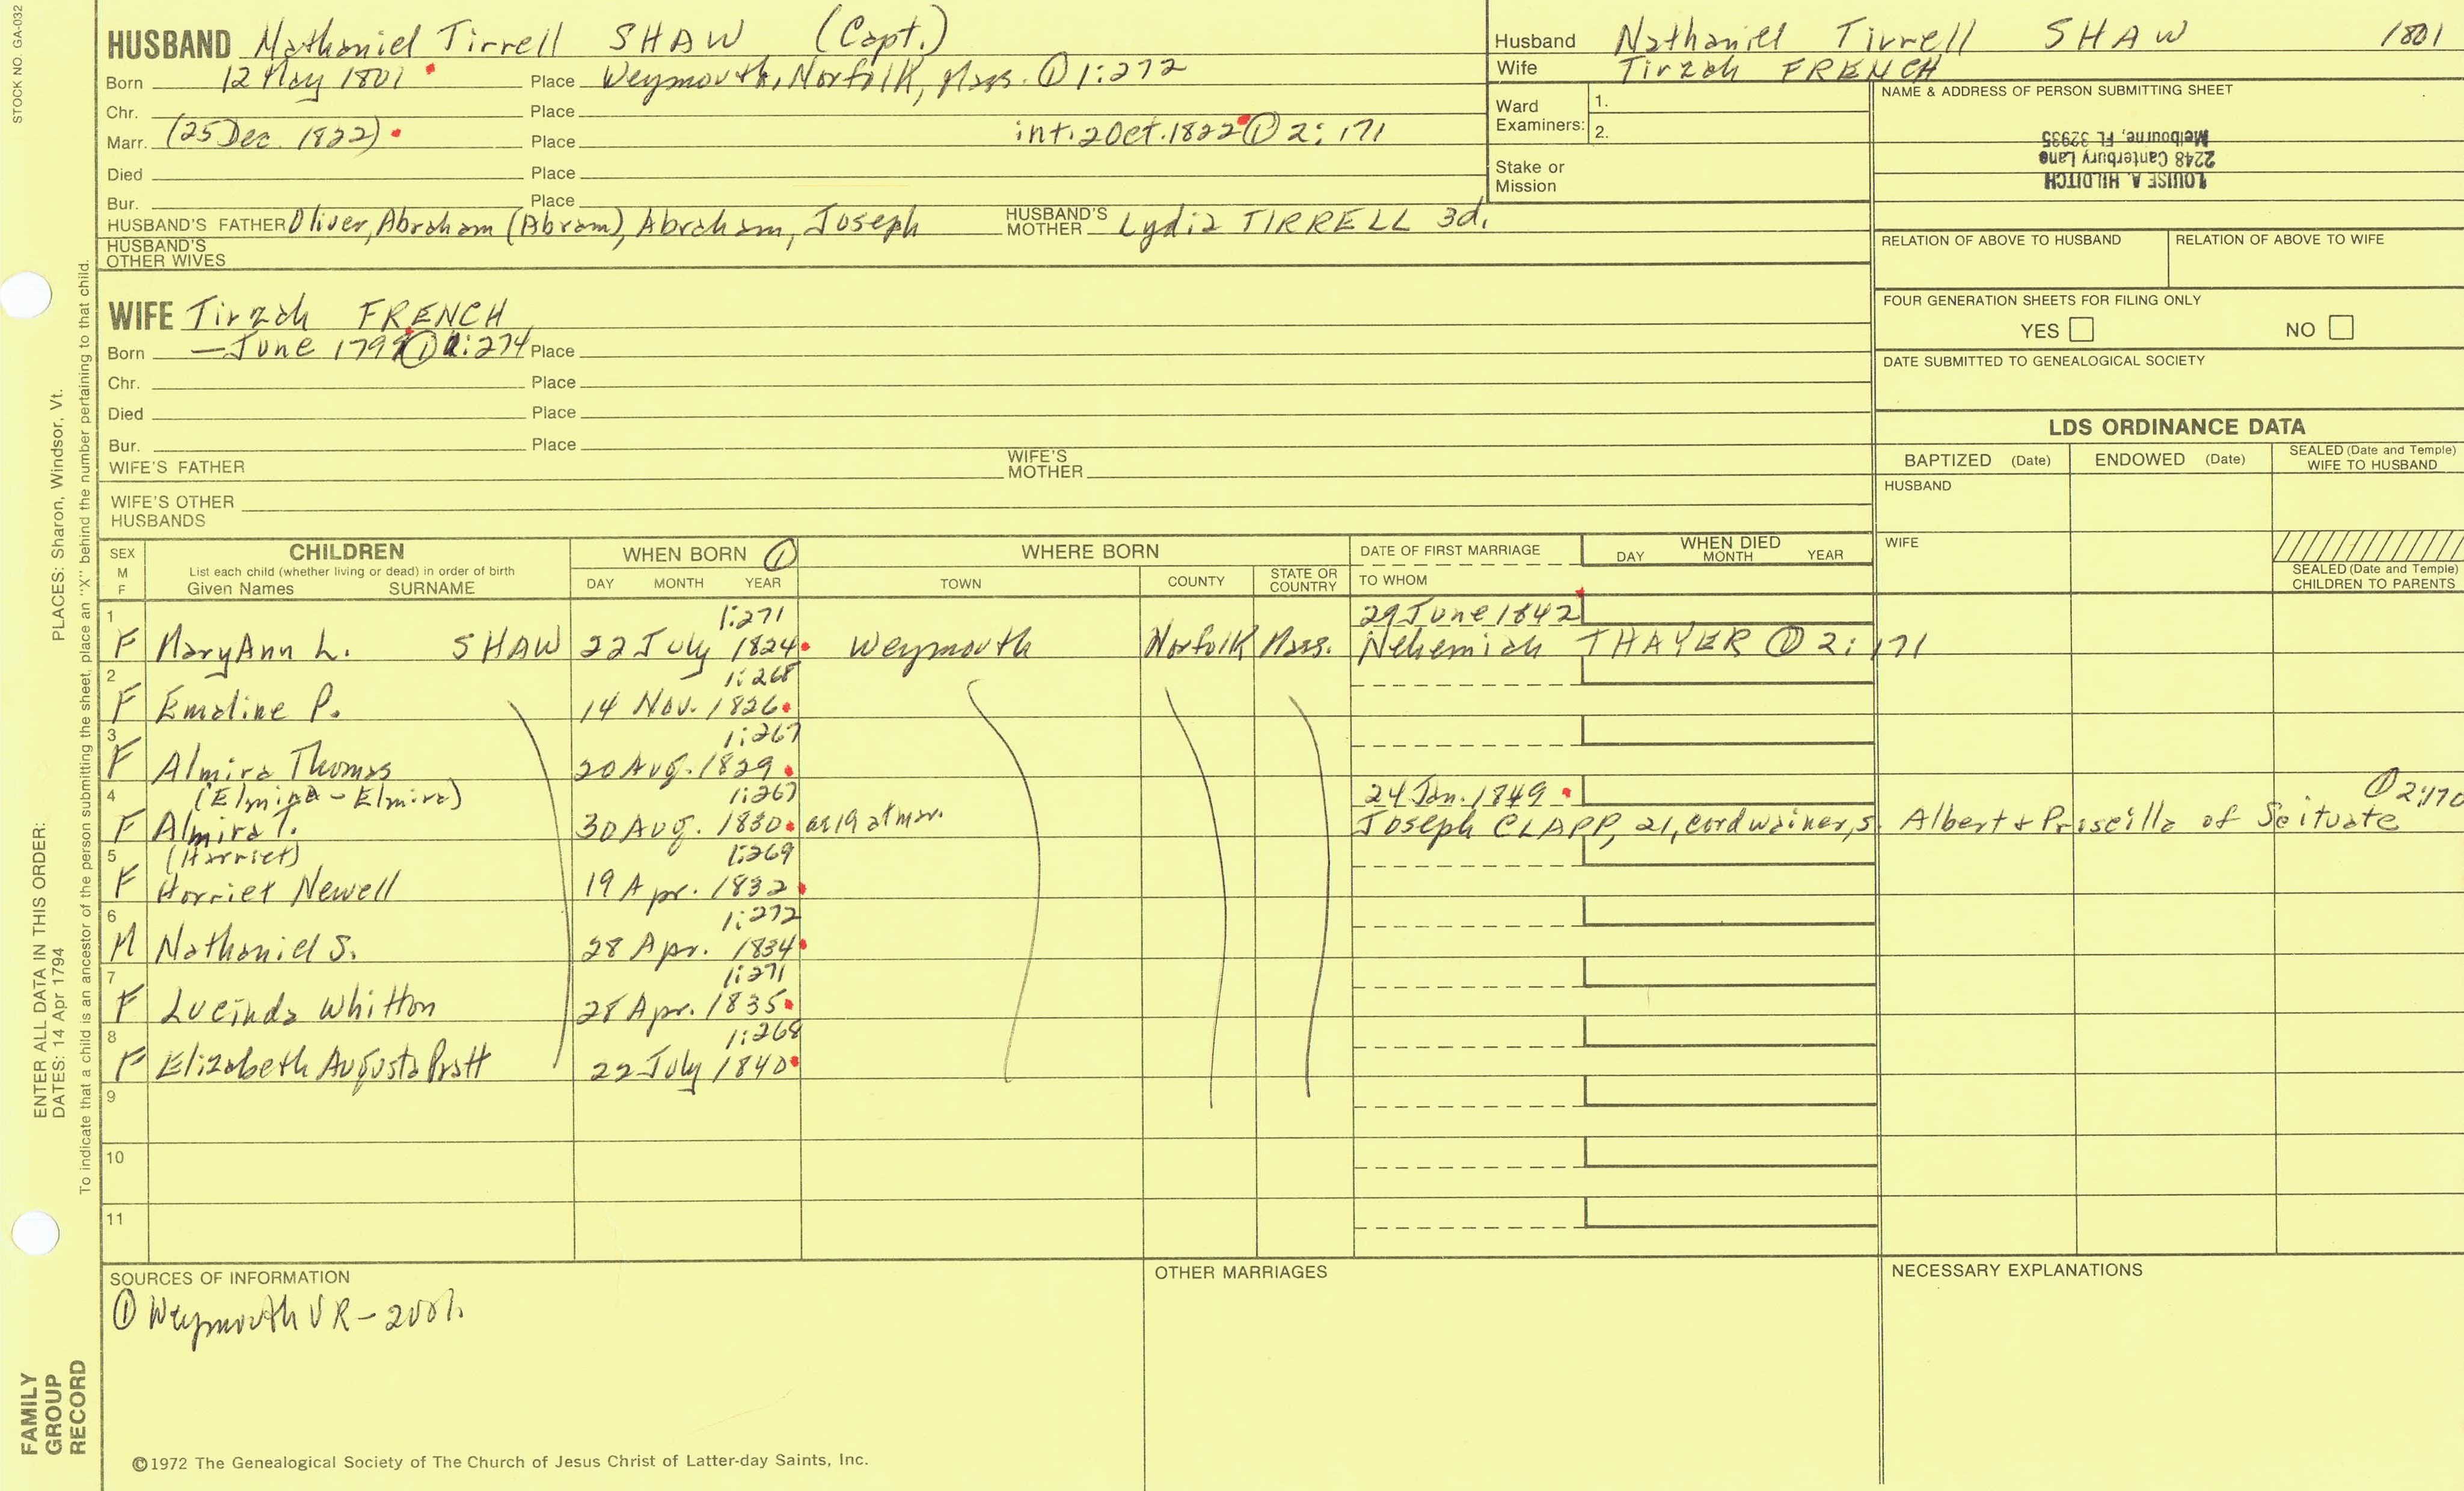 STOCK NO. GA-032
HUSBAND Nathaniel Tirrell SHAW (Capt.)
Born 12 May 1801 Place Weymouth, Norfolk, Mass. ① 1:272
Chr. Place
Marr. (25 Dec. 1822) Place int. 2 Oct. 1822 ① 2:171
Died Place
Bur. Place
HUSBAND'S FATHER Oliver, Abraham (Abram), Abraham, Joseph HUSBAND'S MOTHER Lydia TIRRELL 3d.
HUSBAND'S OTHER WIVES
Husband Nathaniel Tirrell SHAW 1801
Wife Tirzah FRENCH
Ward Examiners: 1.
2.
Stake or Mission
NAME & ADDRESS OF PERSON SUBMITTING SHEET
LOUISE A. HILDITCH
2248 Canterbury Lane
Melbourne, FL 32935
RELATION OF ABOVE TO HUSBAND RELATION OF ABOVE TO WIFE
FOUR GENERATION SHEETS FOR FILING ONLY
YES NO
DATE SUBMITTED TO GENEALOGICAL SOCIETY
WIFE Tirzah FRENCH
Born — June ① :274 Place
Chr. Place
Died Place
Bur. Place
WIFE'S FATHER WIFE'S MOTHER
WIFE'S OTHER HUSBANDS
LDS ORDINANCE DATA
BAPTIZED (Date) ENDOWED (Date) SEALED (Date and Temple) WIFE TO HUSBAND
HUSBAND
WIFE
SEALED (Date and Temple) CHILDREN TO PARENTS
SEX M F
CHILDREN
List each child (whether living or dead) in order of birth
Given Names SURNAME
WHEN BORN ①
DAY MONTH YEAR
WHERE BORN
TOWN COUNTY STATE OR COUNTRY
DATE OF FIRST MARRIAGE
TO WHOM
WHEN DIED
DAY MONTH YEAR
1 1:271 29 June 1842
F Mary Ann L. SHAW 22 July 1824 Weymouth Norfolk Mass. Nehemiah THAYER ① 2:171
2 1:268
F Emeline P. 14 Nov. 1826
3 1:267
F Almira Thomas 20 Aug. 1829
4 (Elmina - Elmira) 1:267 24 Jan. 1849 ① 2:170
F Almira T. 30 Aug. 1830 ae 19 at mar. Joseph CLAPP, 21, cordwainer, s. Albert & Priscilla of Scituate
5 (Harriet) 1:269
F Harriet Newell 19 Apr. 1832
6 1:272
M Nathaniel S. 28 Apr. 1834
7 1:271
F Lucinda Whitton 28 Apr. 1835
8 1:268
F Elizabeth Augusta Pratt 22 July 1840
9
10
11
SOURCES OF INFORMATION
① Weymouth VR - 2 vol.
OTHER MARRIAGES
NECESSARY EXPLANATIONS
©1972 The Genealogical Society of The Church of Jesus Christ of Latter-day Saints, Inc.
FAMILY
GROUP
RECORD
ENTER ALL DATA IN THIS ORDER:
DATES: 14 Apr 1794 PLACES: Sharon, Windsor, Vt.
To indicate that a child is an ancestor of the person submitting the sheet, place an "X" behind the number pertaining to that child.